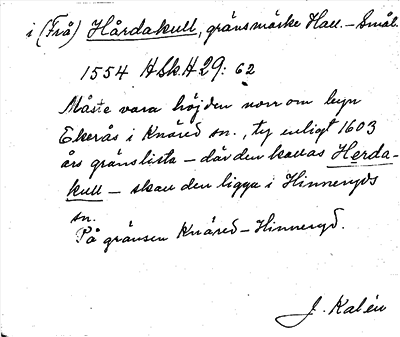 i (Frå) Hårdakull, gränsmärke Hall. – Smål.
1554 HSkH 29: 62
Måste vara höjden norr om byn
Ekerås i Knäred sn., ty enligt 1603
års gränslista – där den kallas Herda-
kull – skall den ligga i Hinneryds
sn.
På gränsen Knäred – Hinneryd.
J. Kalén